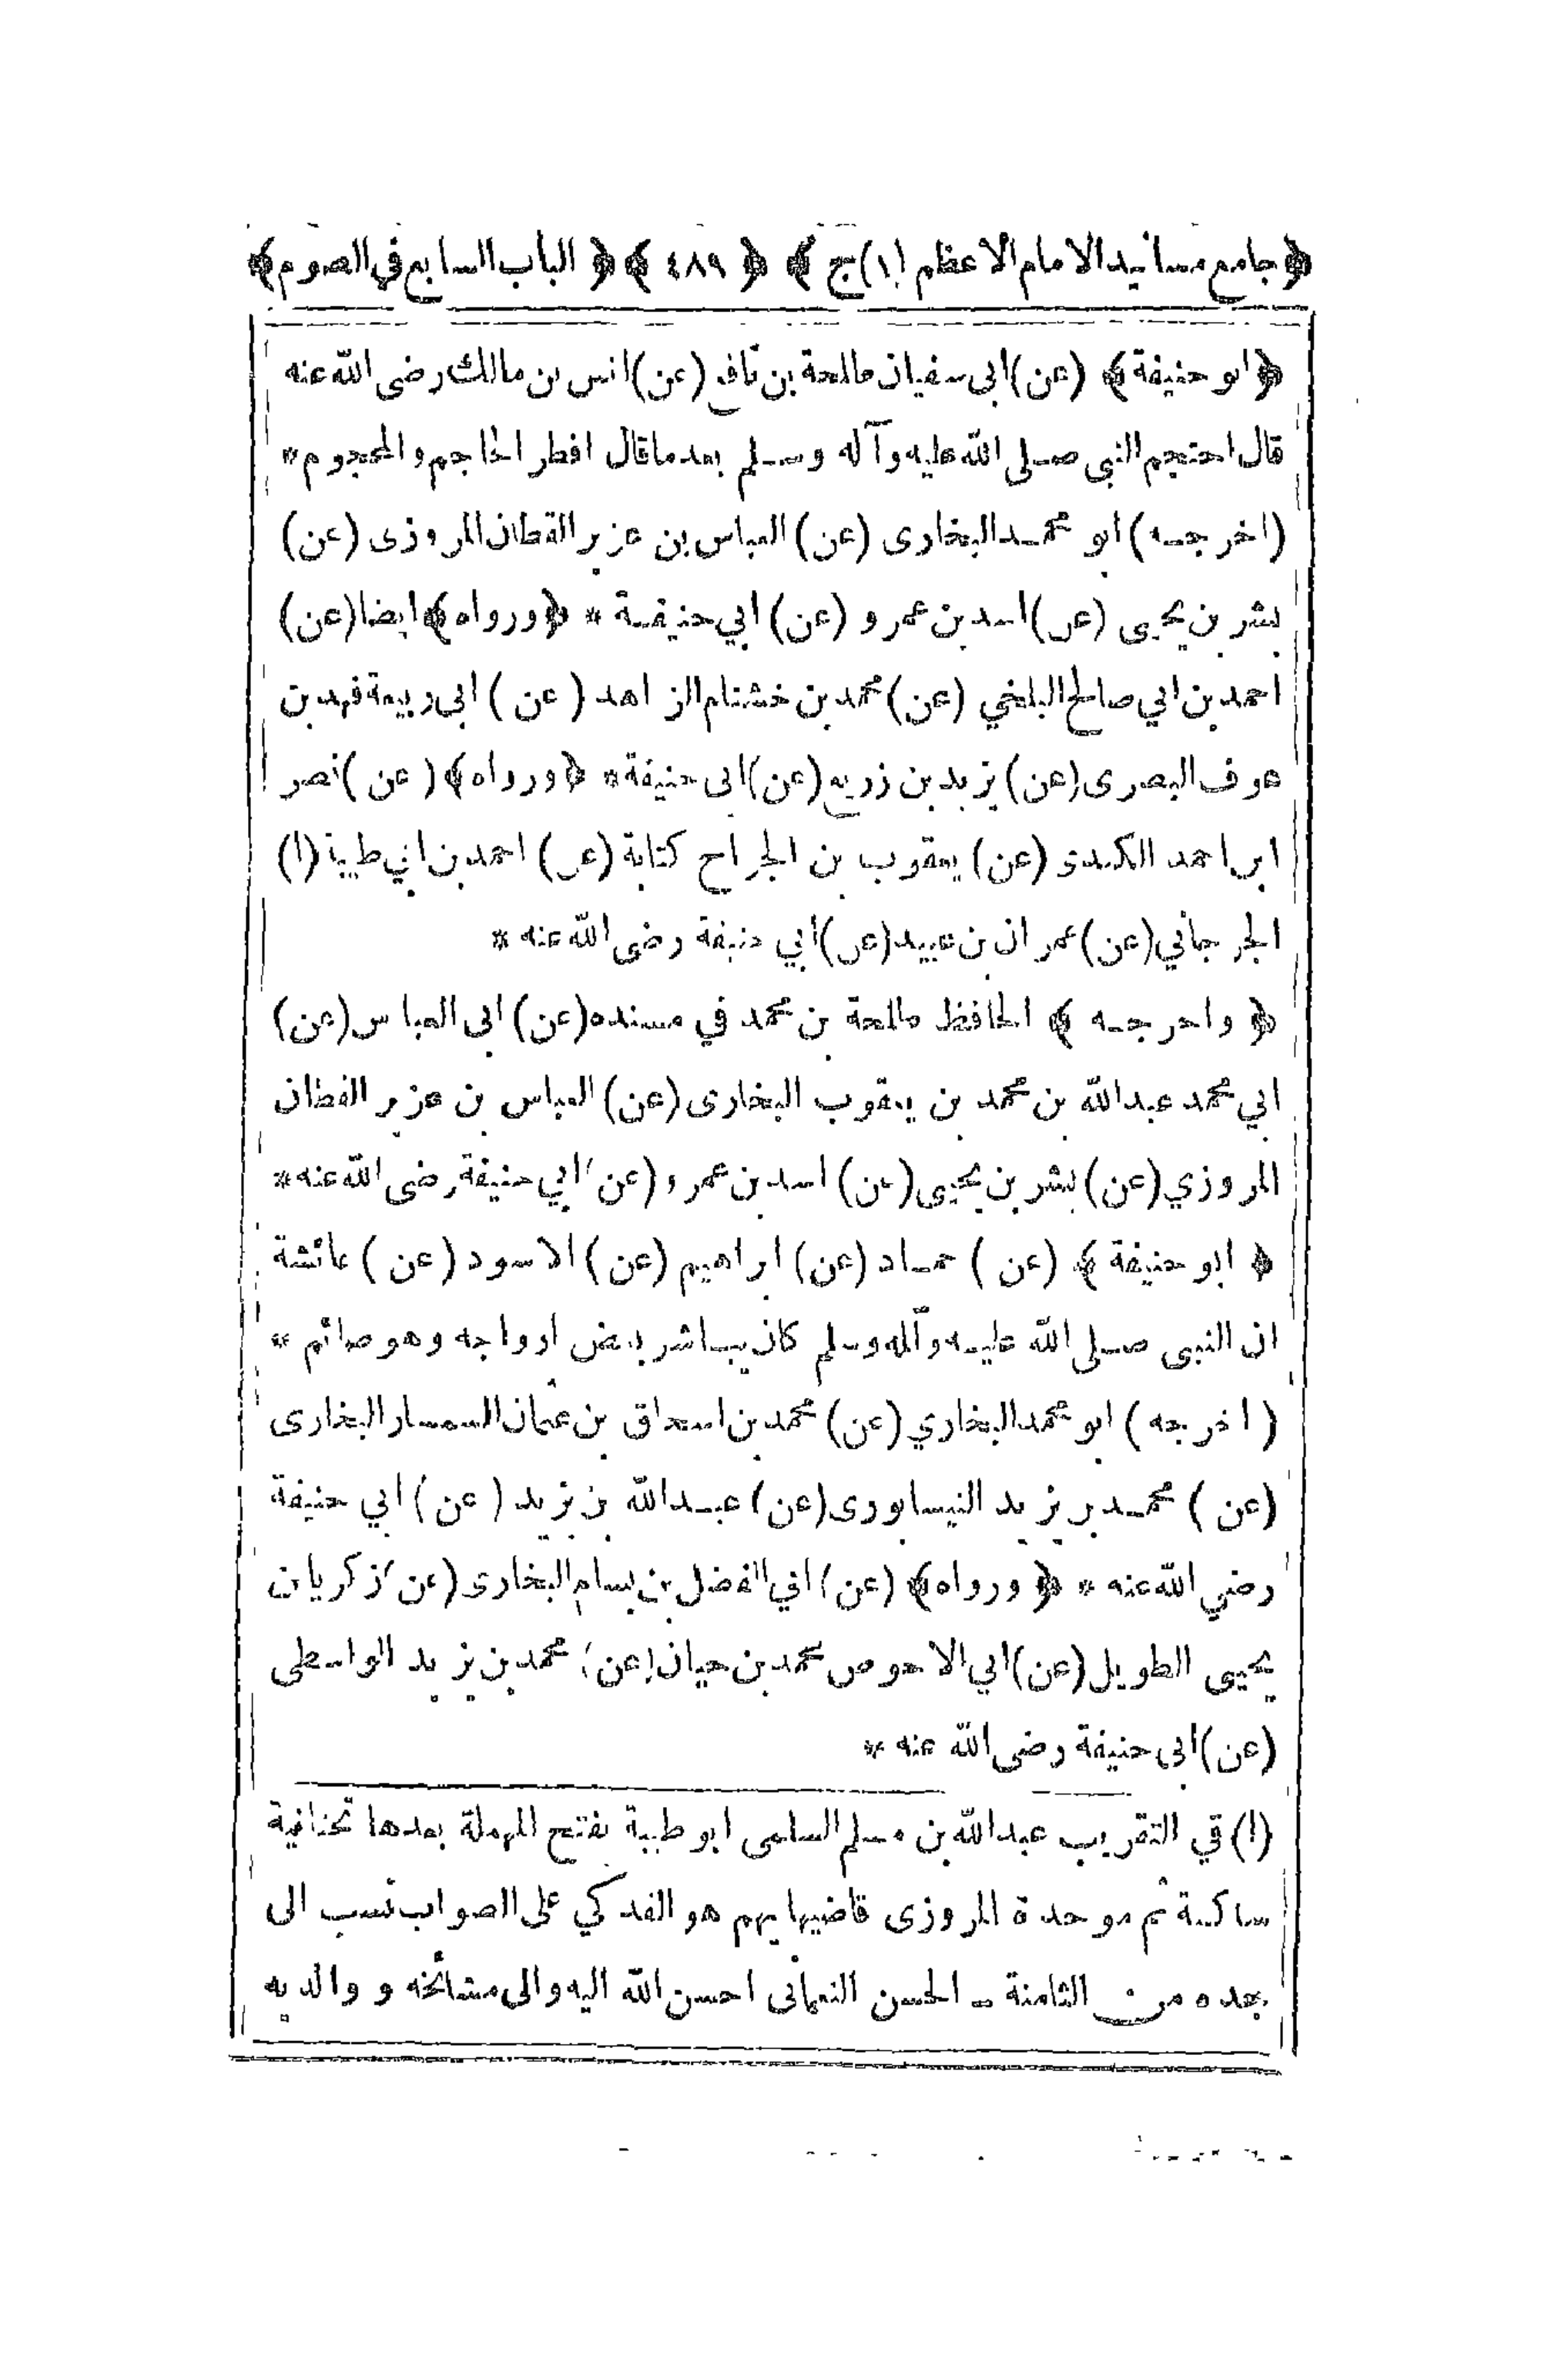 ﴿جامع مسانيد الامام الاعظم (١) ج﴾ ﴿٤٨٩﴾ ﴿الباب السابع في الصوم﴾
﴿ابو حنيفة﴾ (عن) ابى سفيان طلحة بن نافع (عن) انس بن مالك رضى الله عنه
قال احتجم النبى صلى الله عليه وآله وسلم بعد ما قال افطر الحاجم والمحجوم *
(اخرجه) ابو محمد البخارى (عن) العباس بن عزير القطان المروزى (عن)
بشر بن يحيى (عن) اسد بن عمرو (عن) ابي حنيفة * ﴿ورواه﴾ ايضا (عن)
احمد بن ابي صالح البلخي (عن) محمد بن خشنام الزاهد (عن) ابى ربيعة فهد بن
عوف البصرى (عن) يزيد بن زريع (عن) ابى حنيفة * ﴿ورواه﴾ (عن) نصر
ابن احمد الكندى (عن) يعقوب بن الجراح كتابة (عن) احمد بن ابي طيبة (١)
الجرجاني (عن) عمران بن عبيد (عن) ابي حنيفة رضى الله عنه *
﴿واخرجه﴾ الحافظ طلحة بن محمد في مسنده (عن) ابى العباس (عن)
ابي محمد عبد الله بن محمد بن يعقوب البخارى (عن) العباس بن عزير القطان
المروزي (عن) بشر بن يحيى (عن) اسد بن عمرو (عن) ابي حنيفة رضى الله عنه *
﴿ابو حنيفة﴾ (عن) حماد (عن) ابراهيم (عن) الاسود (عن) عائشة
ان النبى صلى الله عليه وآله وسلم كان يباشر بعض ازواجه وهو صائم *
(اخرجه) ابو محمد البخاري (عن) محمد بن اسحاق بن عثمان السمسار البخارى
(عن) محمد بن يزيد النيسابورى (عن) عبد الله بن يزيد (عن) ابي حنيفة
رضي الله عنه * ﴿ورواه﴾ (عن) ابي الفضل بن بسام البخارى (عن) زكريا بن
يحيى الطويل (عن) ابي الاحوص محمد بن حيان (عن) محمد بن يزيد الواسطى
(عن) ابى حنيفة رضى الله عنه *
(١) في التقريب عبد الله بن مسلم السلمى ابو طيبة بفتح المهملة بعدها تحتانية
ساكنة ثم موحدة المروزى قاضيها يهم هو الفدكي على الصواب نسب الى
جده من الثامنة - الحسن النعمانى احسن الله اليه والى مشائخه ووالديه